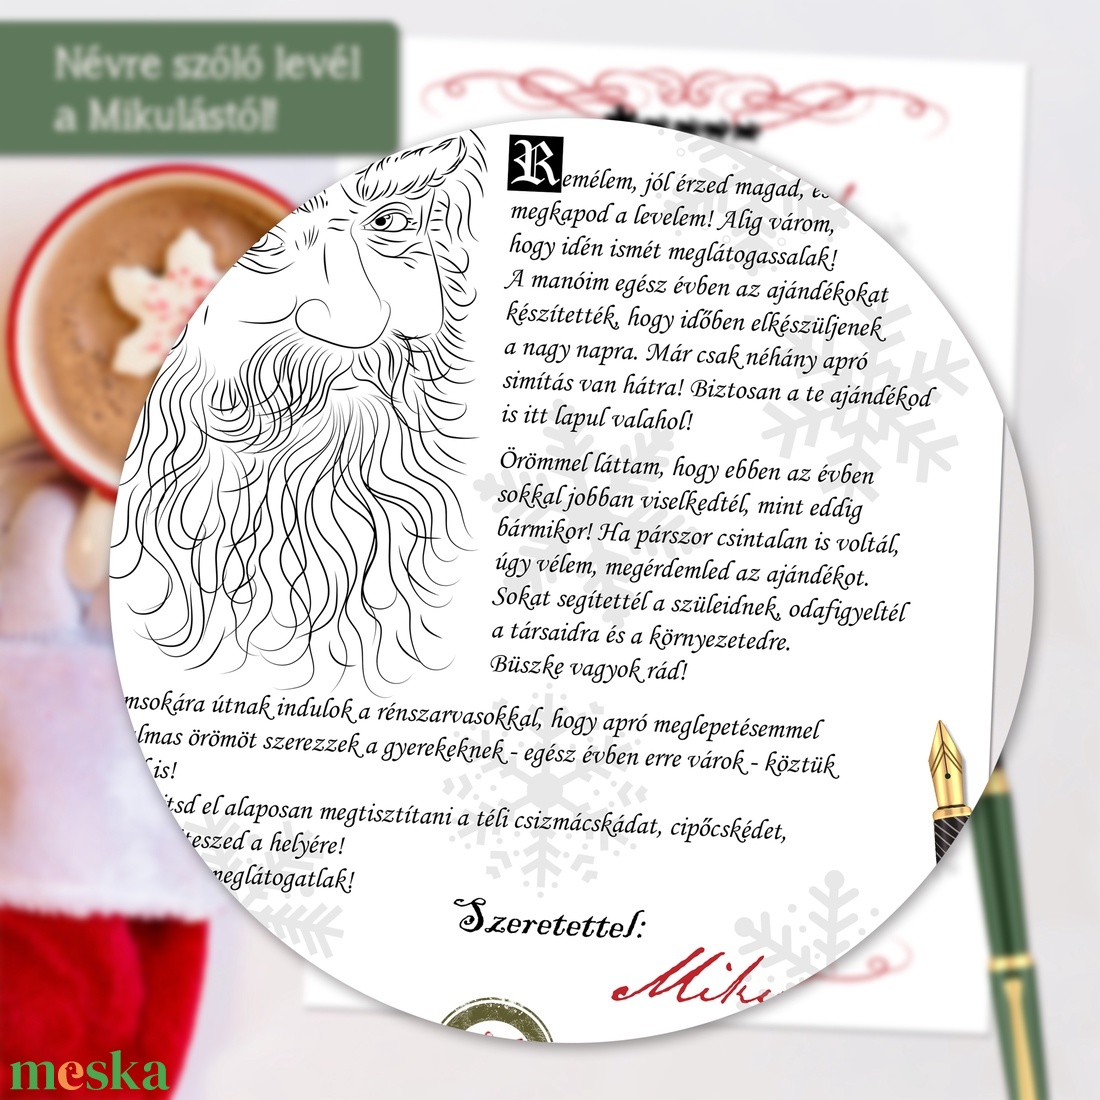 Névre szóló levél
a Mikulástól!
Remélem, jól érzed magad,
megkapod a levelem! Alig várom,
hogy idén ismét meglátogassalak!
A manóim egész évben az ajándékokat
készítették, hogy időben elkészüljenek
a nagy napra. Már csak néhány apró
simítás van hátra! Biztosan a te ajándékod
is itt lapul valahol!
Örömmel láttam, hogy ebben az évben
sokkal jobban viselkedtél, mint eddig
bármikor! Ha párszor csintalan is voltál,
úgy vélem, megérdemled az ajándékot.
Sokat segítettél a szüleidnek, odafigyeltél
a társaidra és a környezetedre.
Büszke vagyok rád!
msokára útnak indulok a rénszarvasokkal, hogy apró meglepetésemmel
lmas örömöt szerezzek a gyerekeknek - egész évben erre várok - köztük
is!
tsd el alaposan megtisztítani a téli csizmácskádat, cipőcskédet,
teszed a helyére!
meglátogatlak!
Szeretettel:
Miku
meska